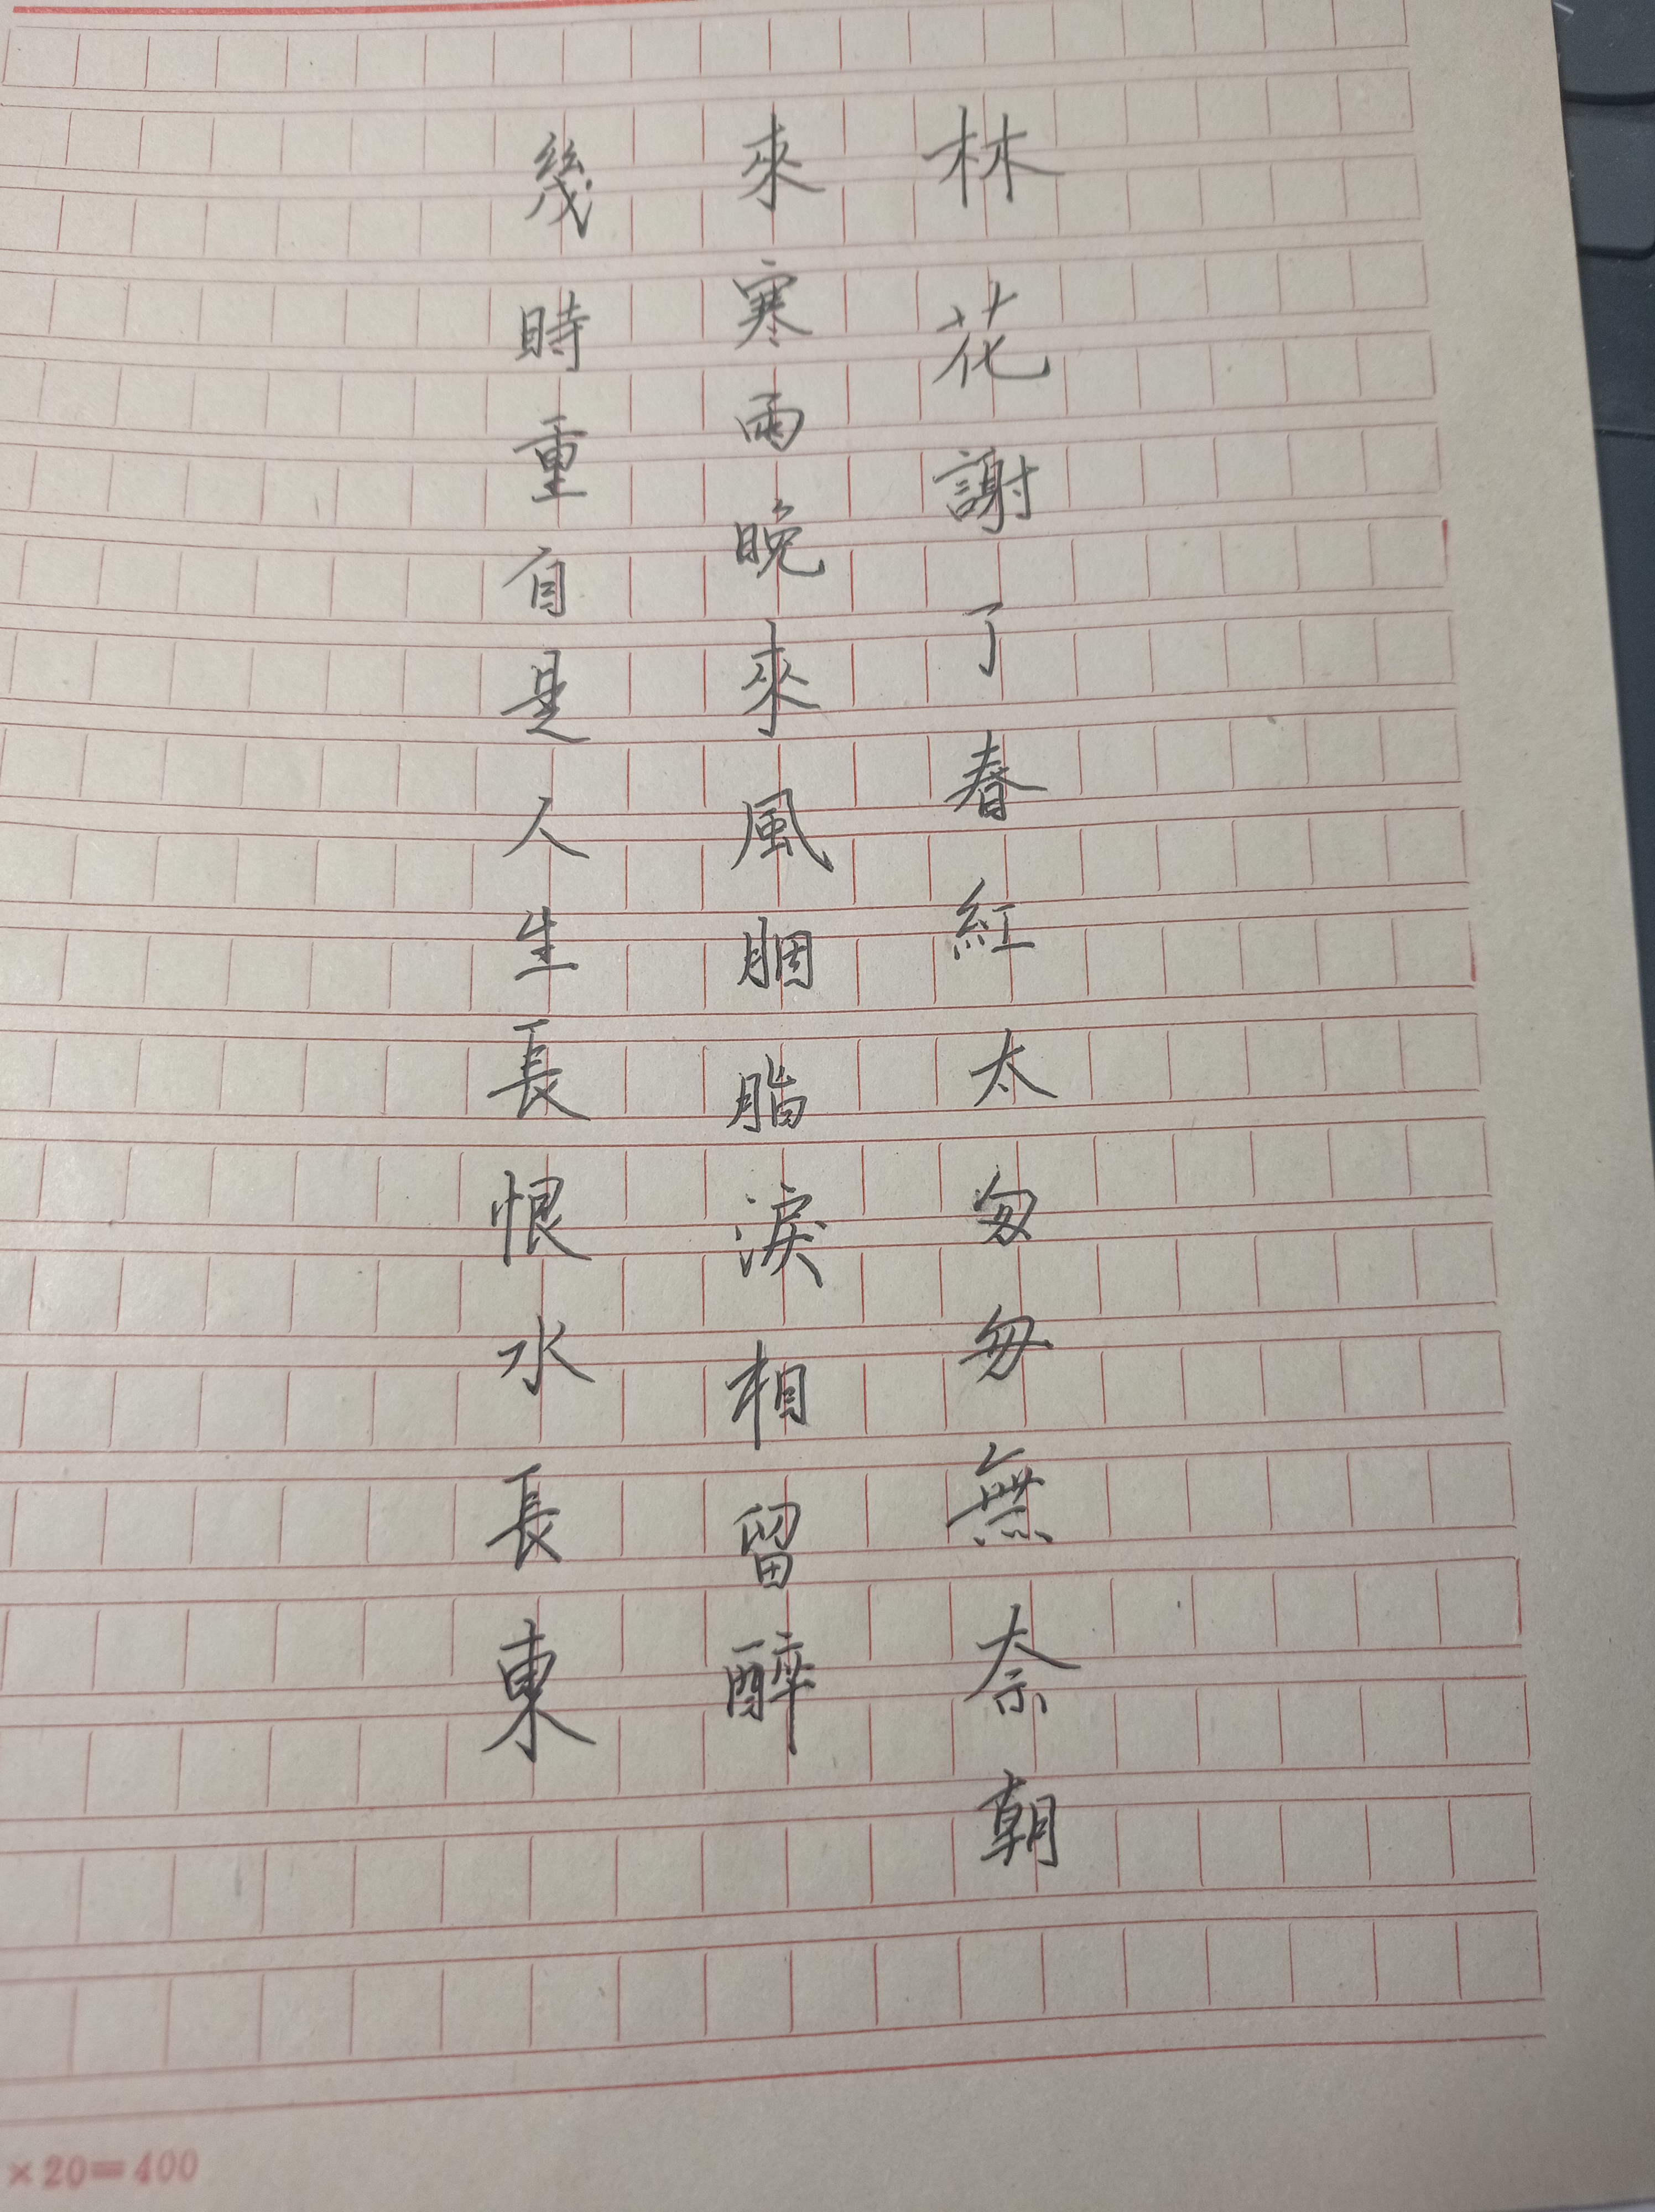 林花謝了春紅太匆匆無奈朝
來寒雨晚來風胭脂淚相留醉
幾時重自是人生長恨水長東
×20=400